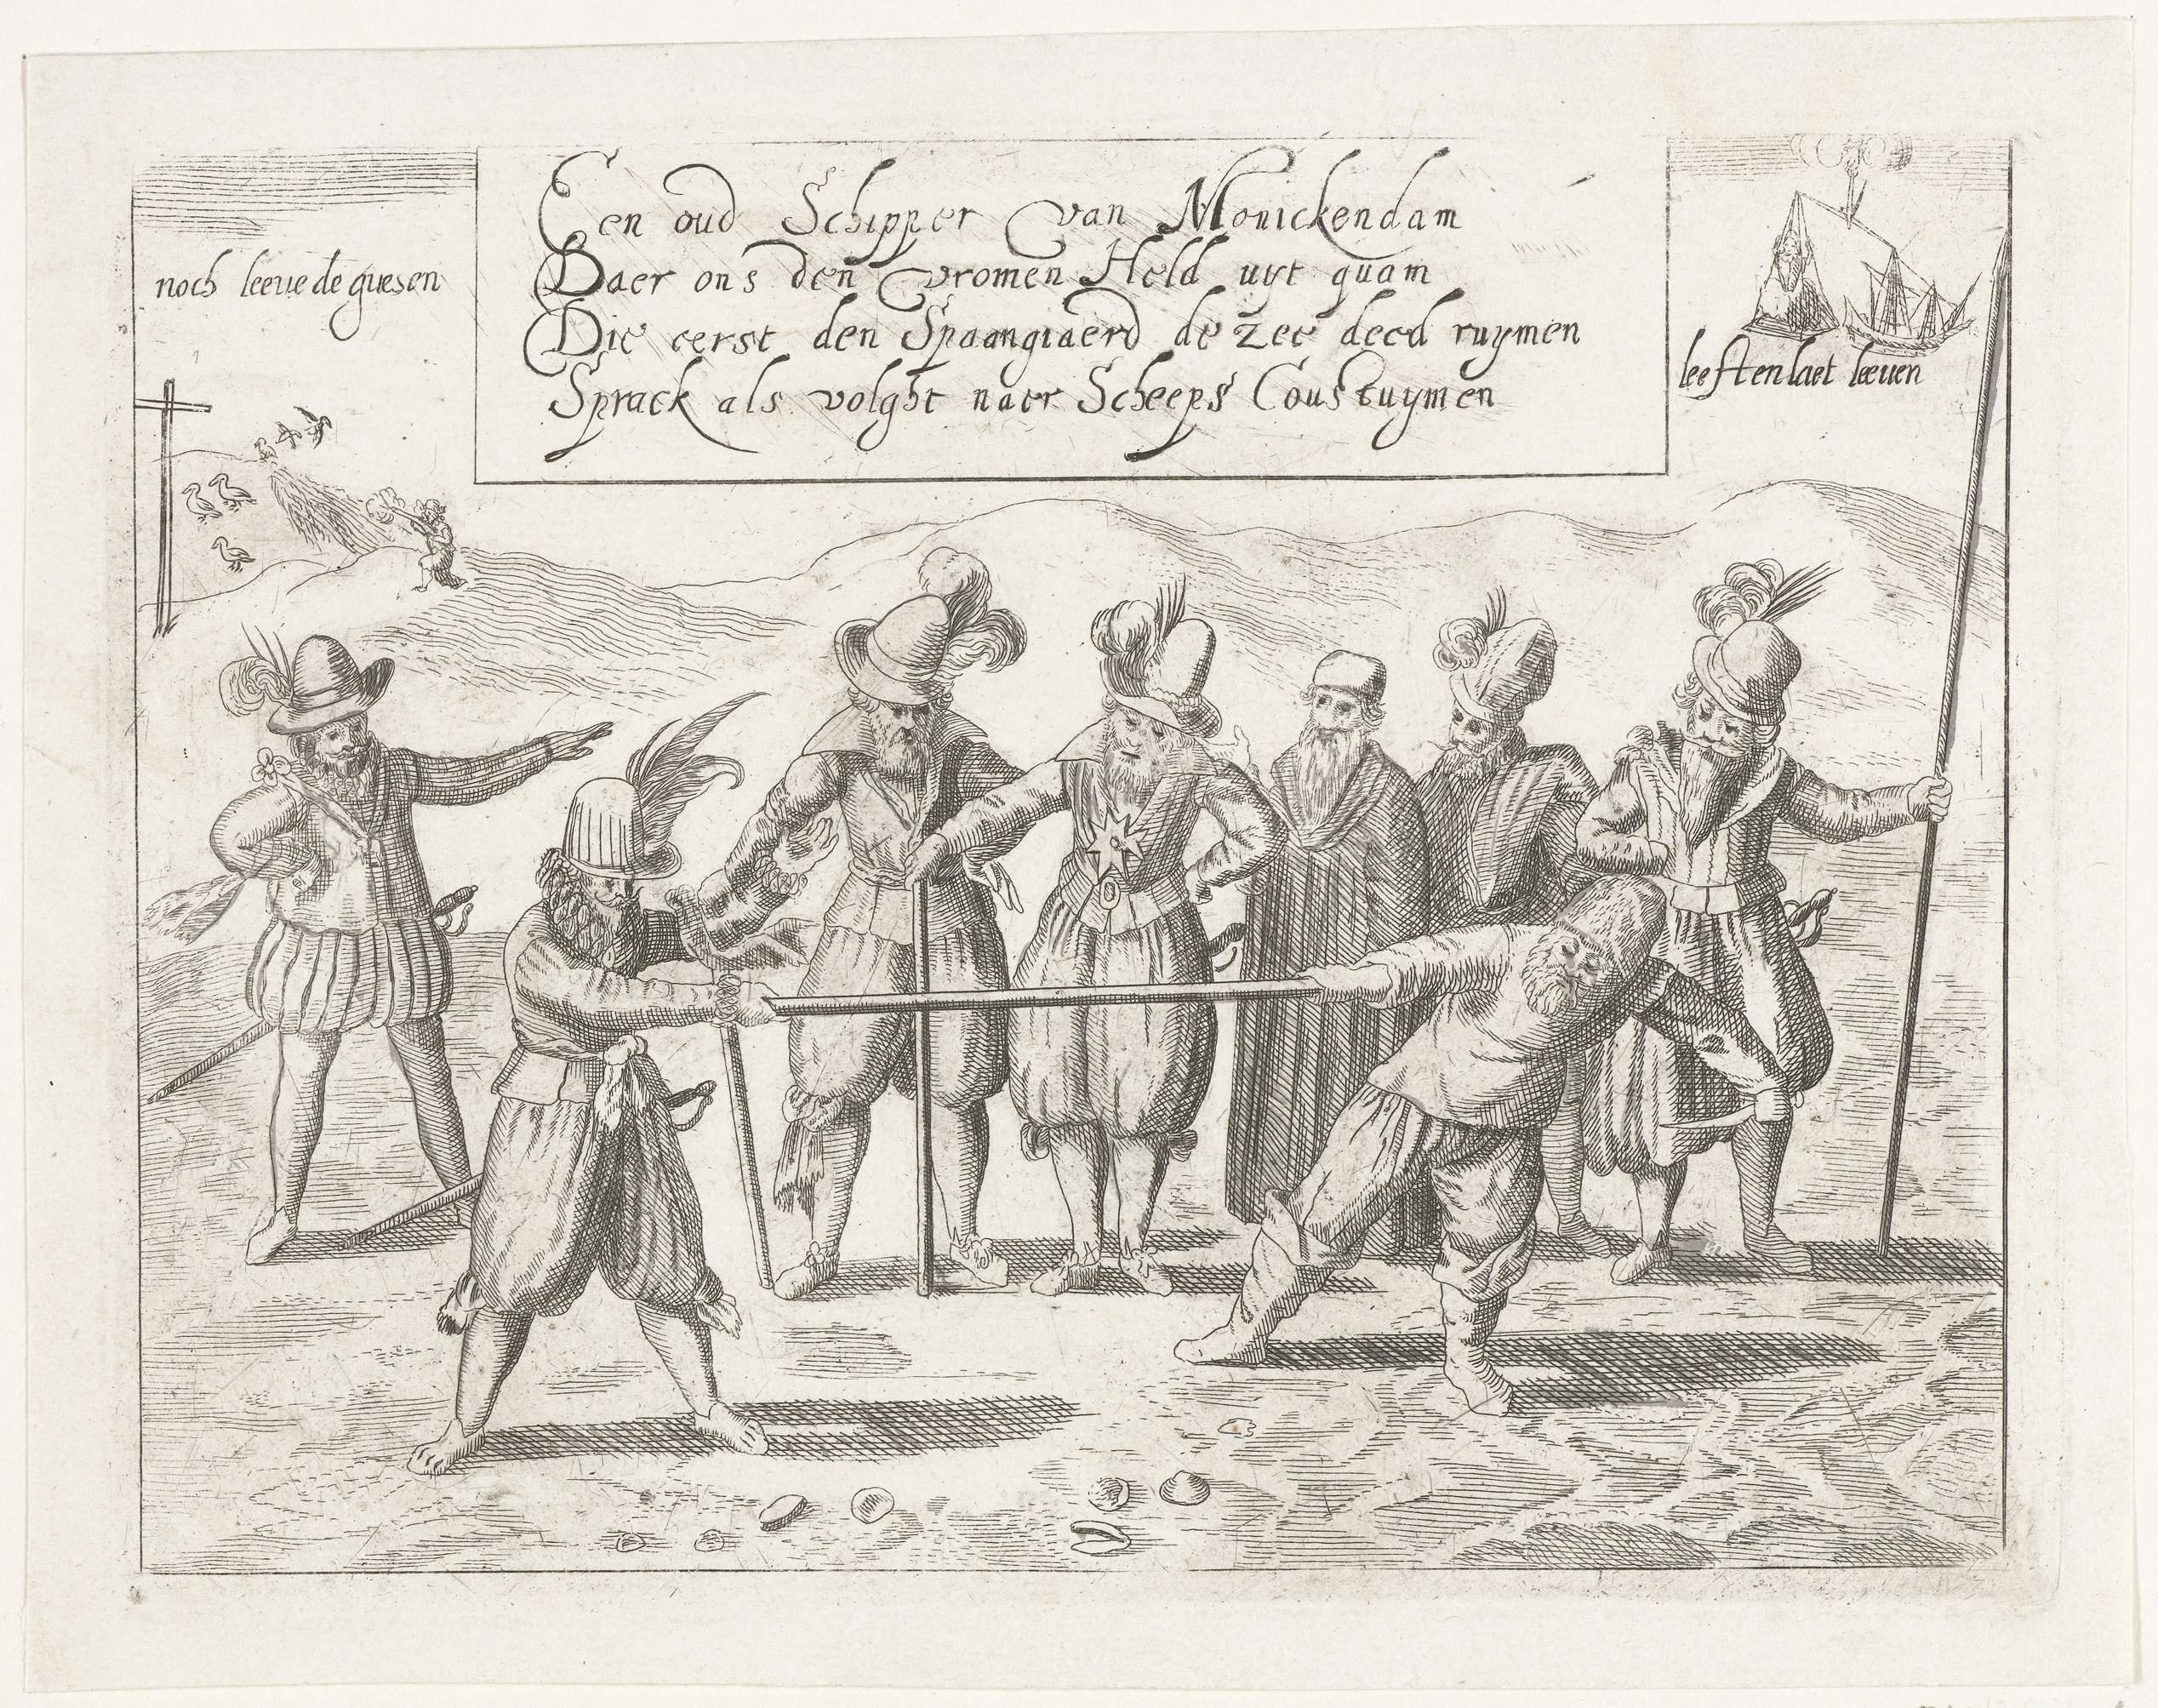 noch leeue de guesen
Een oud Schipper van Monickendam
Daer ons den vromen Held uyt quam
Die eerst den Spaangiaerd de zee deed ruymen
Sprack als volght naer Scheeps Coustuymen
leeft en laet leeuen